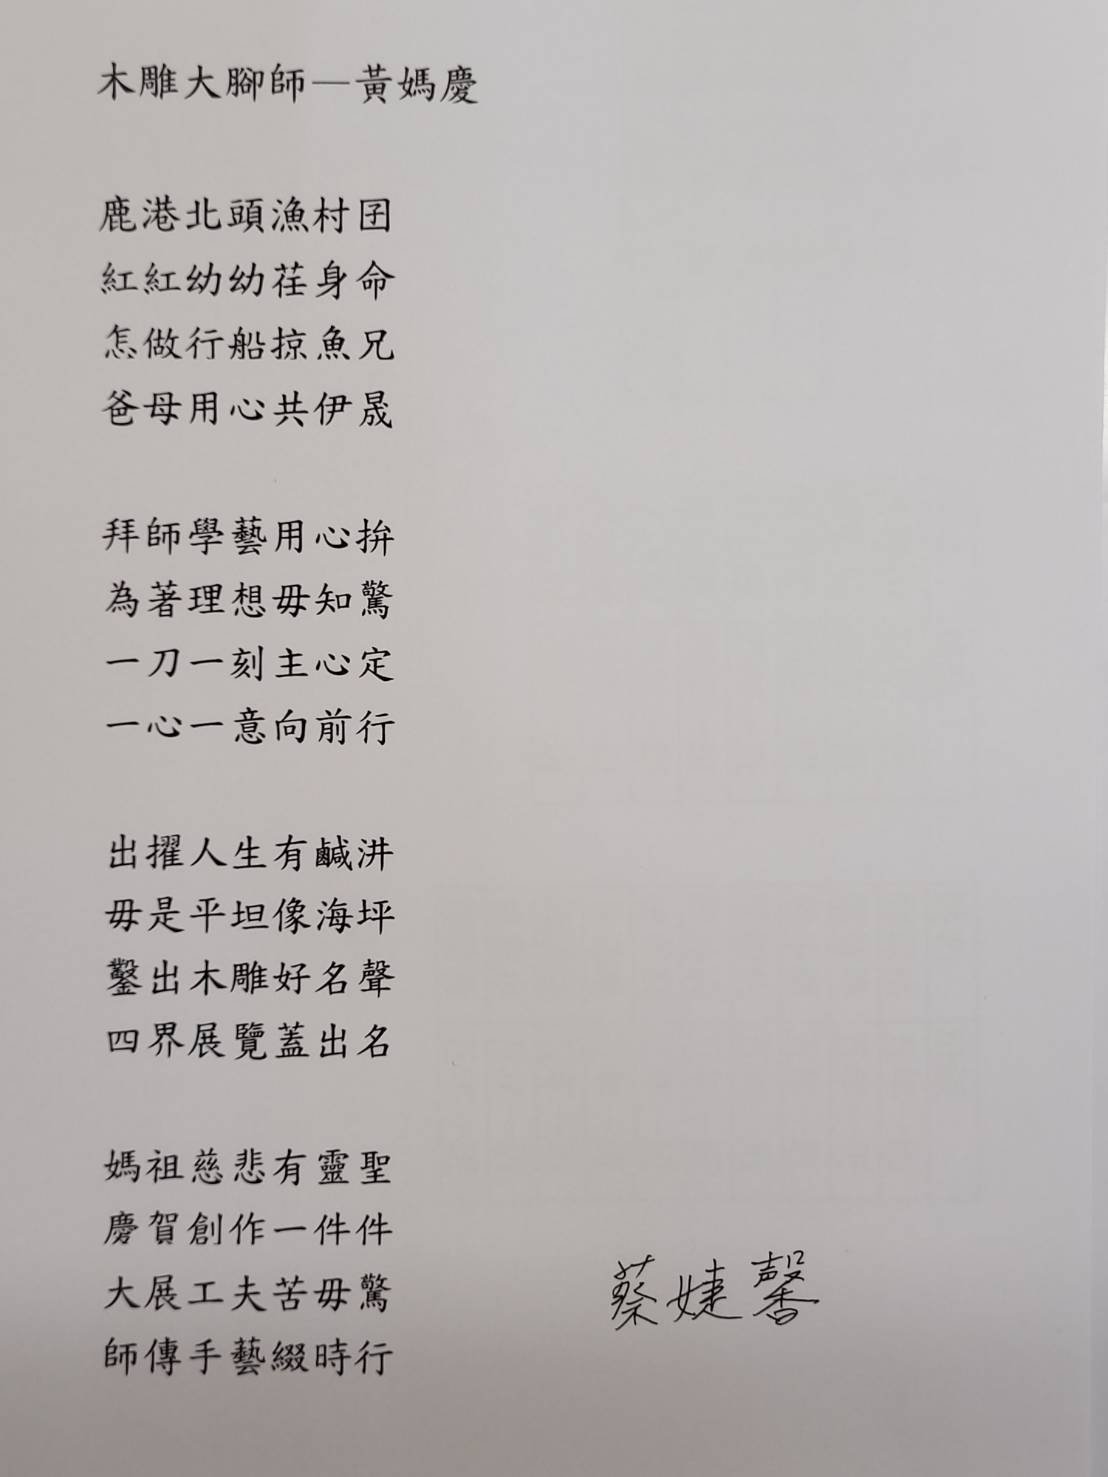 木雕大腳師—黃媽慶
鹿港北頭漁村囝
紅紅幼幼荏身命
怎做行船掠魚兄
爸母用心共伊晟
拜師學藝用心拚
為著理想毋知驚
一刀一刻主心定
一心一意向前行
出擢人生有鹹汫
毋是平坦像海坪
鑿出木雕好名聲
四界展覽蓋出名
媽祖慈悲有靈聖
慶賀創作一件件
大展工夫苦毋驚
師傳手藝綴時行
蔡婕馨